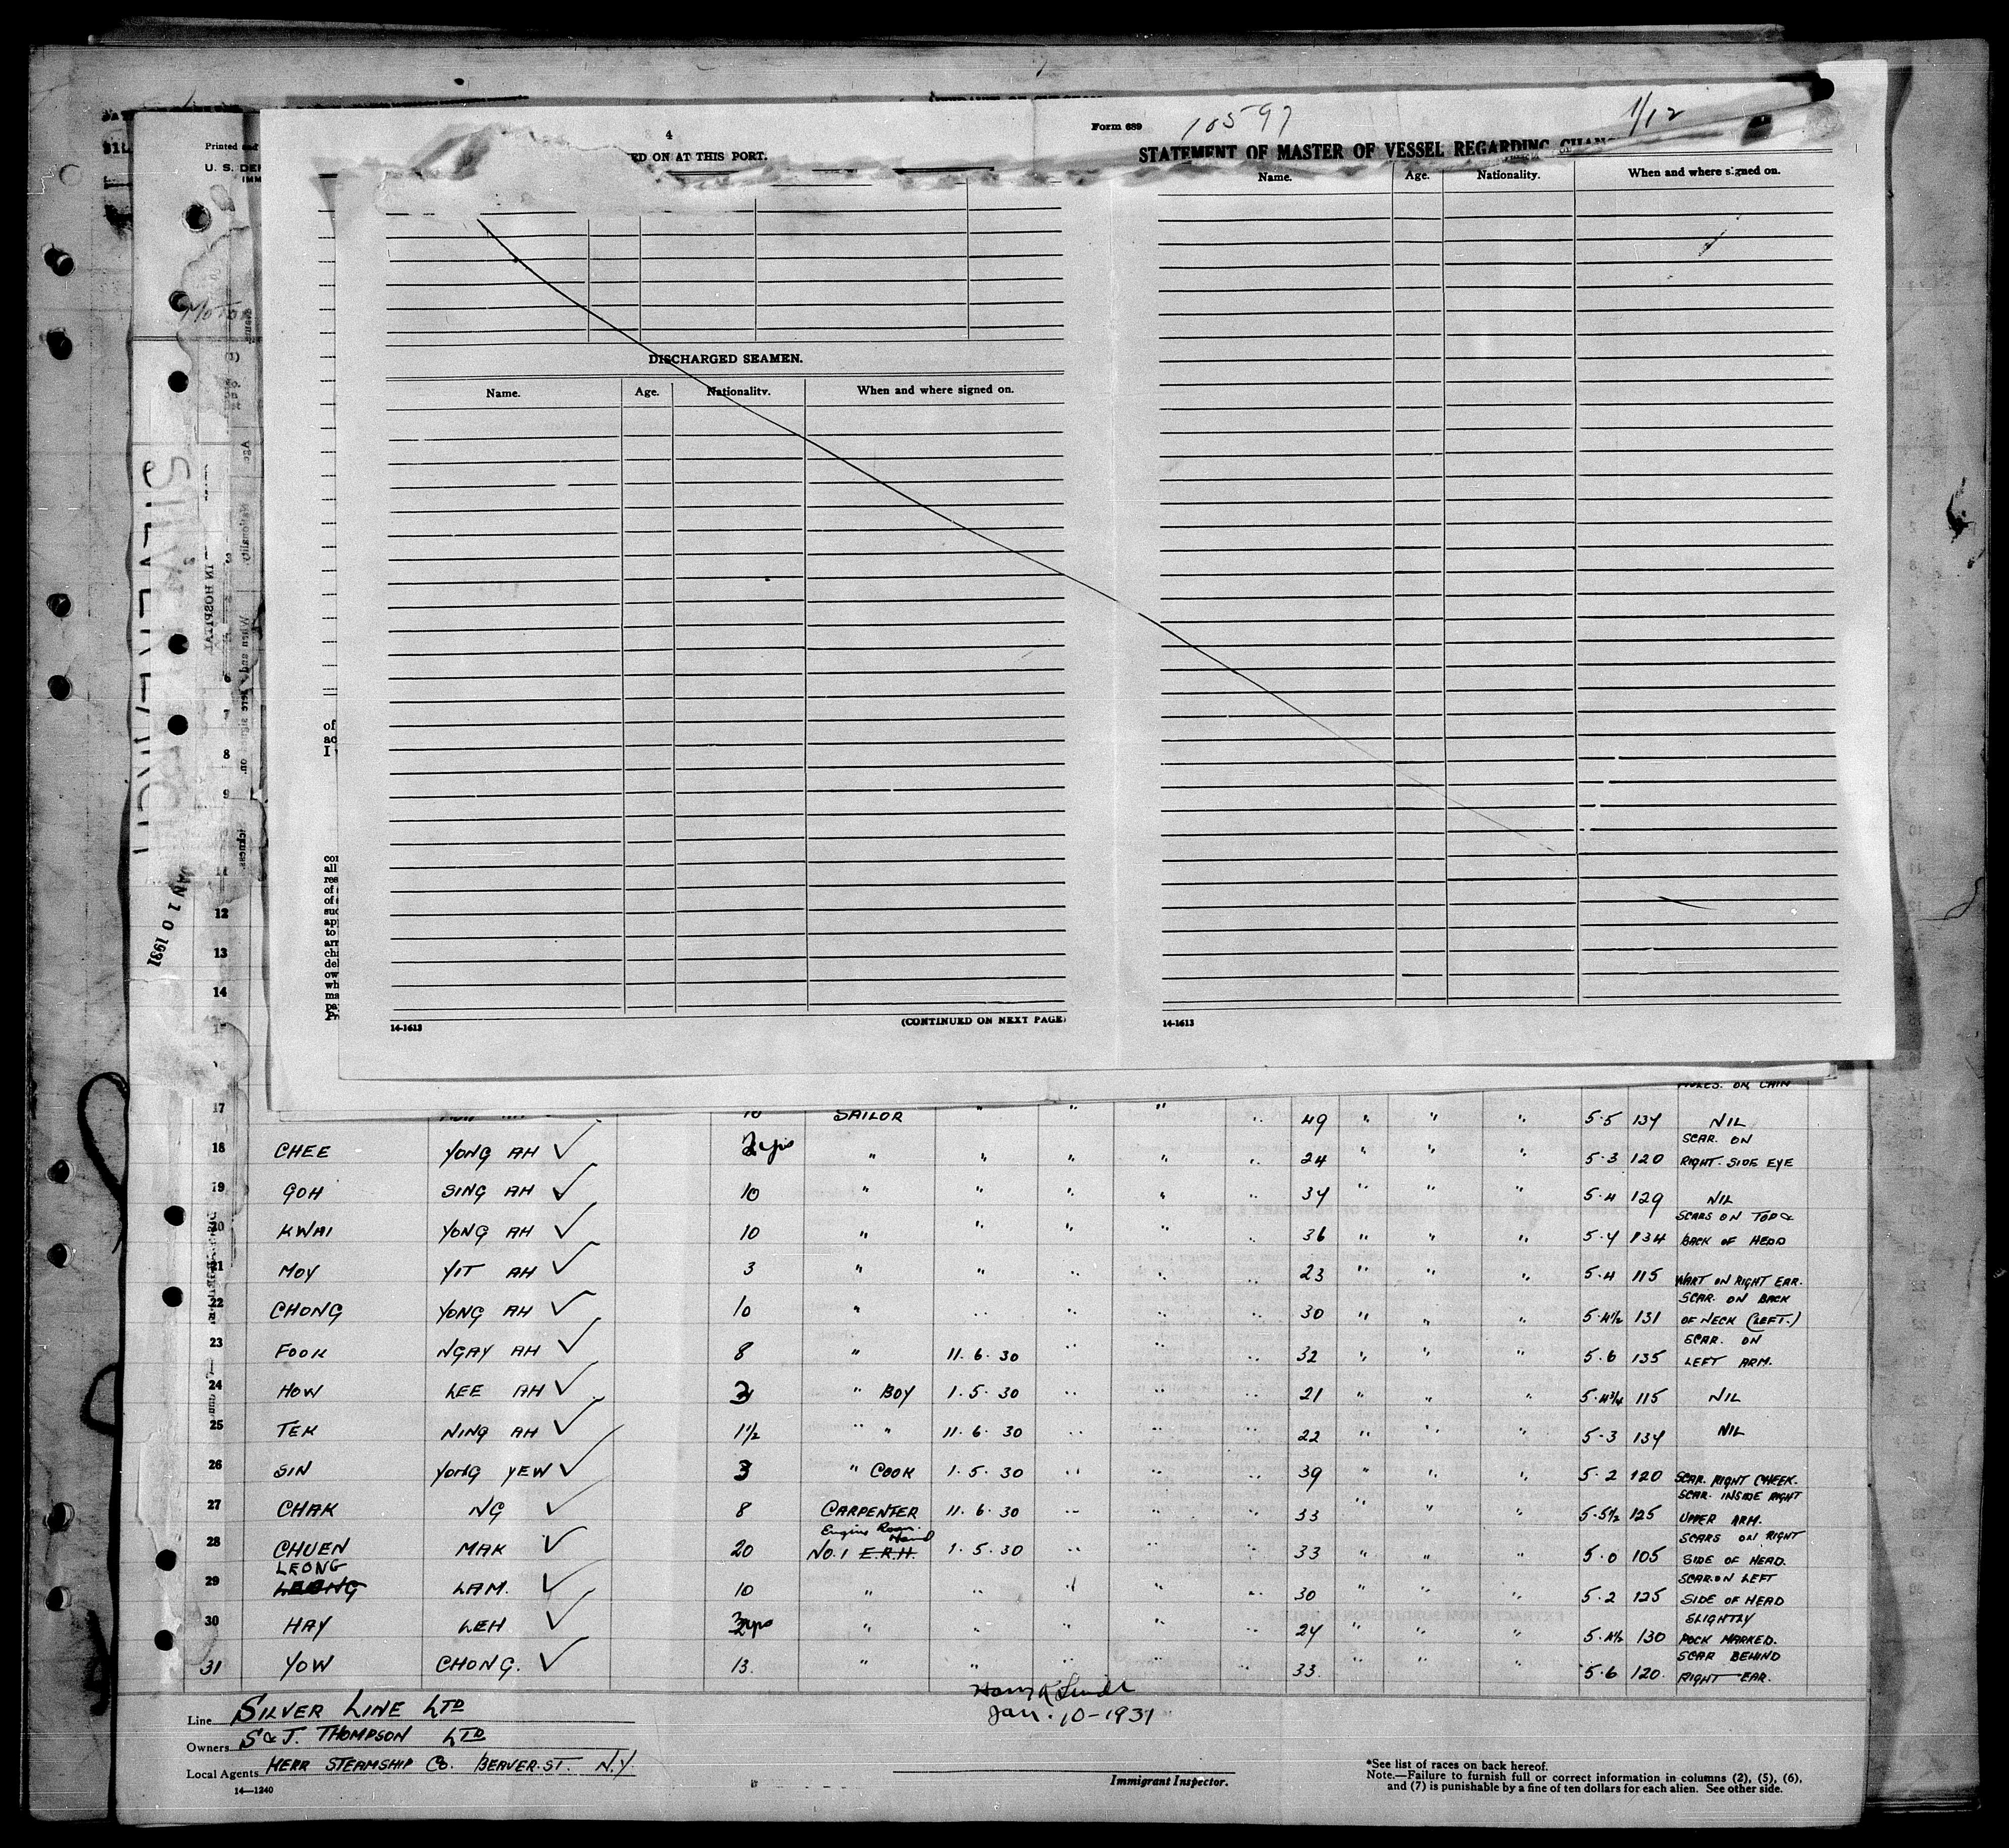 10597
1/12
Form 689
4
ED ON AT THIS PORT.
STATEMENT OF MASTER OF VESSEL REGARDING
Printed and
U. S. DE
IMM
Name. Age. Nationality. When and where signed on.
DISCHARGED SEAMEN.
Name. Age. Nationality. When and where signed on.
14-1613 (CONTINUED ON NEXT PAGE)
14-1613
MOTOR
IN HOSPITAL
JAN 10 1931
8
9
11
12
13
14
17 10 SAILOR " " " " 49 " " " 5·5 134 NIL
18 CHEE YONG AH ✓ " " " " " 24 " " " 5·3 120 SCAR. ON RIGHT. SIDE EYE
19 GOH SING AH ✓ 10 " " " " " 34 " " " 5·4 129 NIL
20 KWAI YONG AH ✓ 10 " " " " " 36 " " " 5·4 134 SCARS ON TOP & BACK OF HEAD
21 MOY YIT AH ✓ 3 " " " " " 23 " " " 5·4 115 WART ON RIGHT EAR.
22 CHONG YONG AH ✓ 10 " " " " " 30 " " " 5·4½ 131 SCAR. ON BACK OF NECK (LEFT.)
23 FOOK NGAY AH ✓ 8 " 11·6·30 " " " 32 " " " 5·6 135 SCAR. ON LEFT ARM.
24 HOW LEE AH ✓ 3 " BOY 1·5·30 " " " 21 " " " 5·4¾ 115 NIL
25 TEK NING AH ✓ 1½ " " 11·6·30 " " " 22 " " " 5·3 134 NIL
26 SIN YONG YEW ✓ 3 " COOK 1·5·30 " " " 39 " " " 5·2 120 SCAR. RIGHT CHEEK.
27 CHAK NG ✓ 8 CARPENTER 11·6·30 " " " 33 " " " 5·5½ 125 SCAR. INSIDE RIGHT UPPER ARM.
Engine Room Hand
28 CHUEN MAK ✓ 20 NO.1 E.R.H. 1·5·30 " " " 33 " " " 5·0 105 SCARS ON RIGHT SIDE OF HEAD.
LEONG
29 LEONG LAM. ✓ 10 " " " " " 30 " " " 5·2 125 SCAR ON LEFT SIDE OF HEAD
30 HAY LEH ✓ " " " " " 24 " " " 5·4½ 130 SLIGHTLY POCK MARKED.
31 YOW CHONG. ✓ 13. " " " " " 33. " " " 5·6 120. SCAR BEHIND RIGHT EAR.
Line SILVER LINE LTD
Owners S & J. THOMPSON LTD
Local Agents KERR STEAMSHIP Co. BEAVER.ST. N.Y.
14—1240
Jan. 10-1931
Immigrant Inspector.
*See list of races on back hereof.
Note.—Failure to furnish full or correct information in columns (2), (5), (6),
and (7) is punishable by a fine of ten dollars for each alien. See other side.